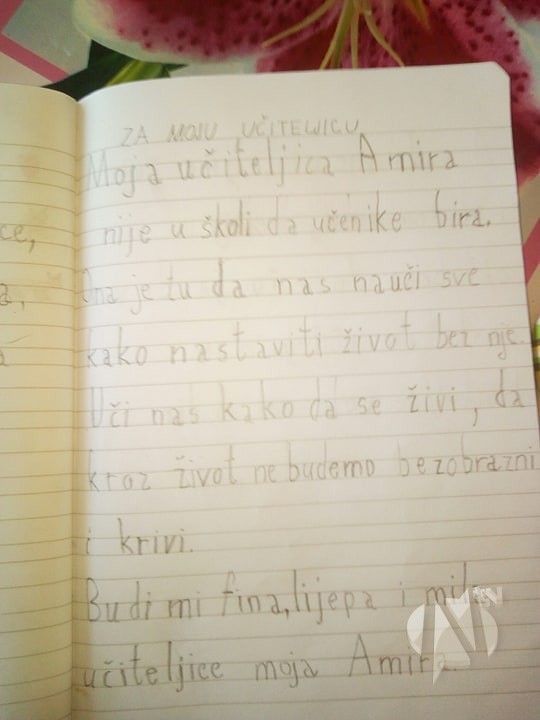 ce,
a,
a
ZA MOJU UČITELJICU
Moja učiteljica Amira
nije u školi da učenike bira.
Ona je tu da nas nauči sve
kako nastaviti život bez nje.
Uči nas kako da se živi, da
kroz život ne budemo bezobrazni
i krivi.
Budi mi fina, lijepa i mila
učiteljice moja Amira.